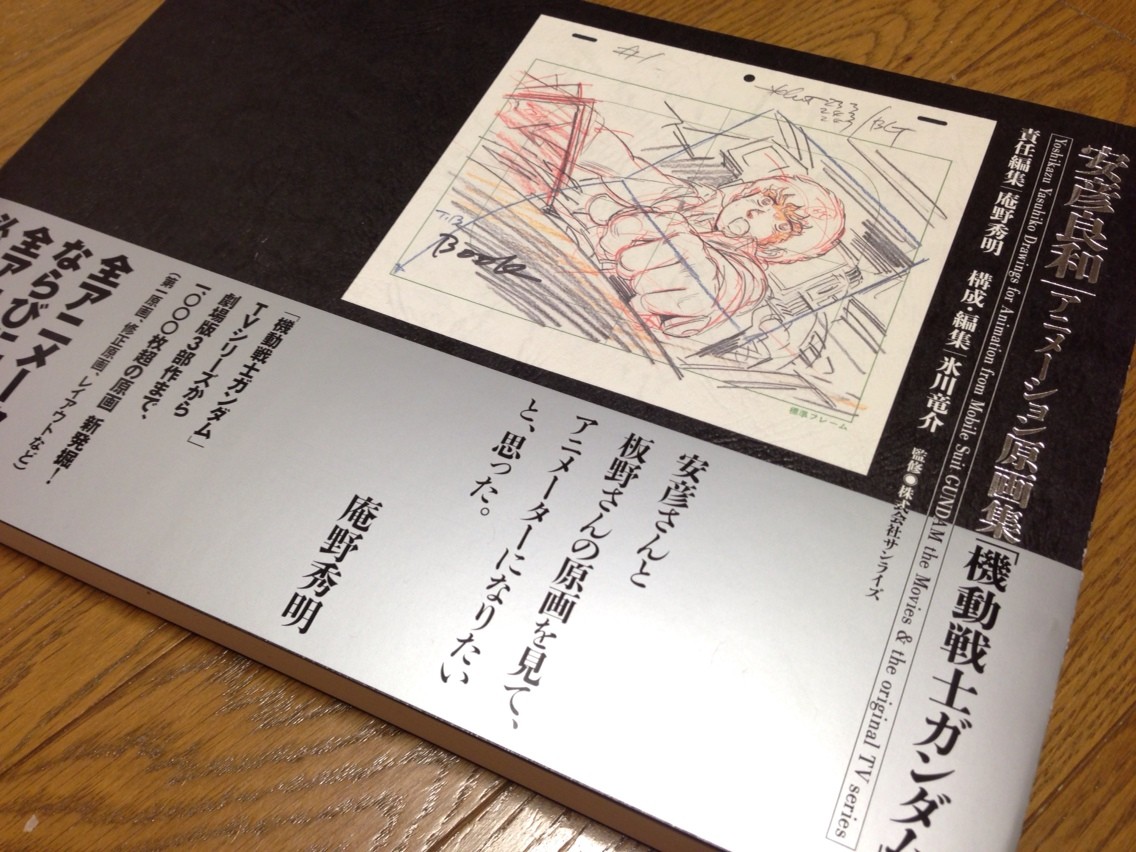 安彦良和｜アニメーション原画集「機動戦士ガンダム」
Yoshikazu Yasuhiko Drawings for Animation from Mobile Suit GUNDAM the Movies & the original TV series
責任編集｜庵野秀明 構成・編集｜氷川竜介 監修●株式会社サンライズ
#1
BG
T.B
Book
標準フレーム
安彦さんと
板野さんの原画を見て、
アニメーターになりたい
と、思った。
庵野秀明
「機動戦士ガンダム」
TVシリーズから
劇場版3部作まで、
一,〇〇〇枚超の原画 新発掘!
(第一原画、修正原画、レイアウトなど)
全アニメー
ならびに
全ア